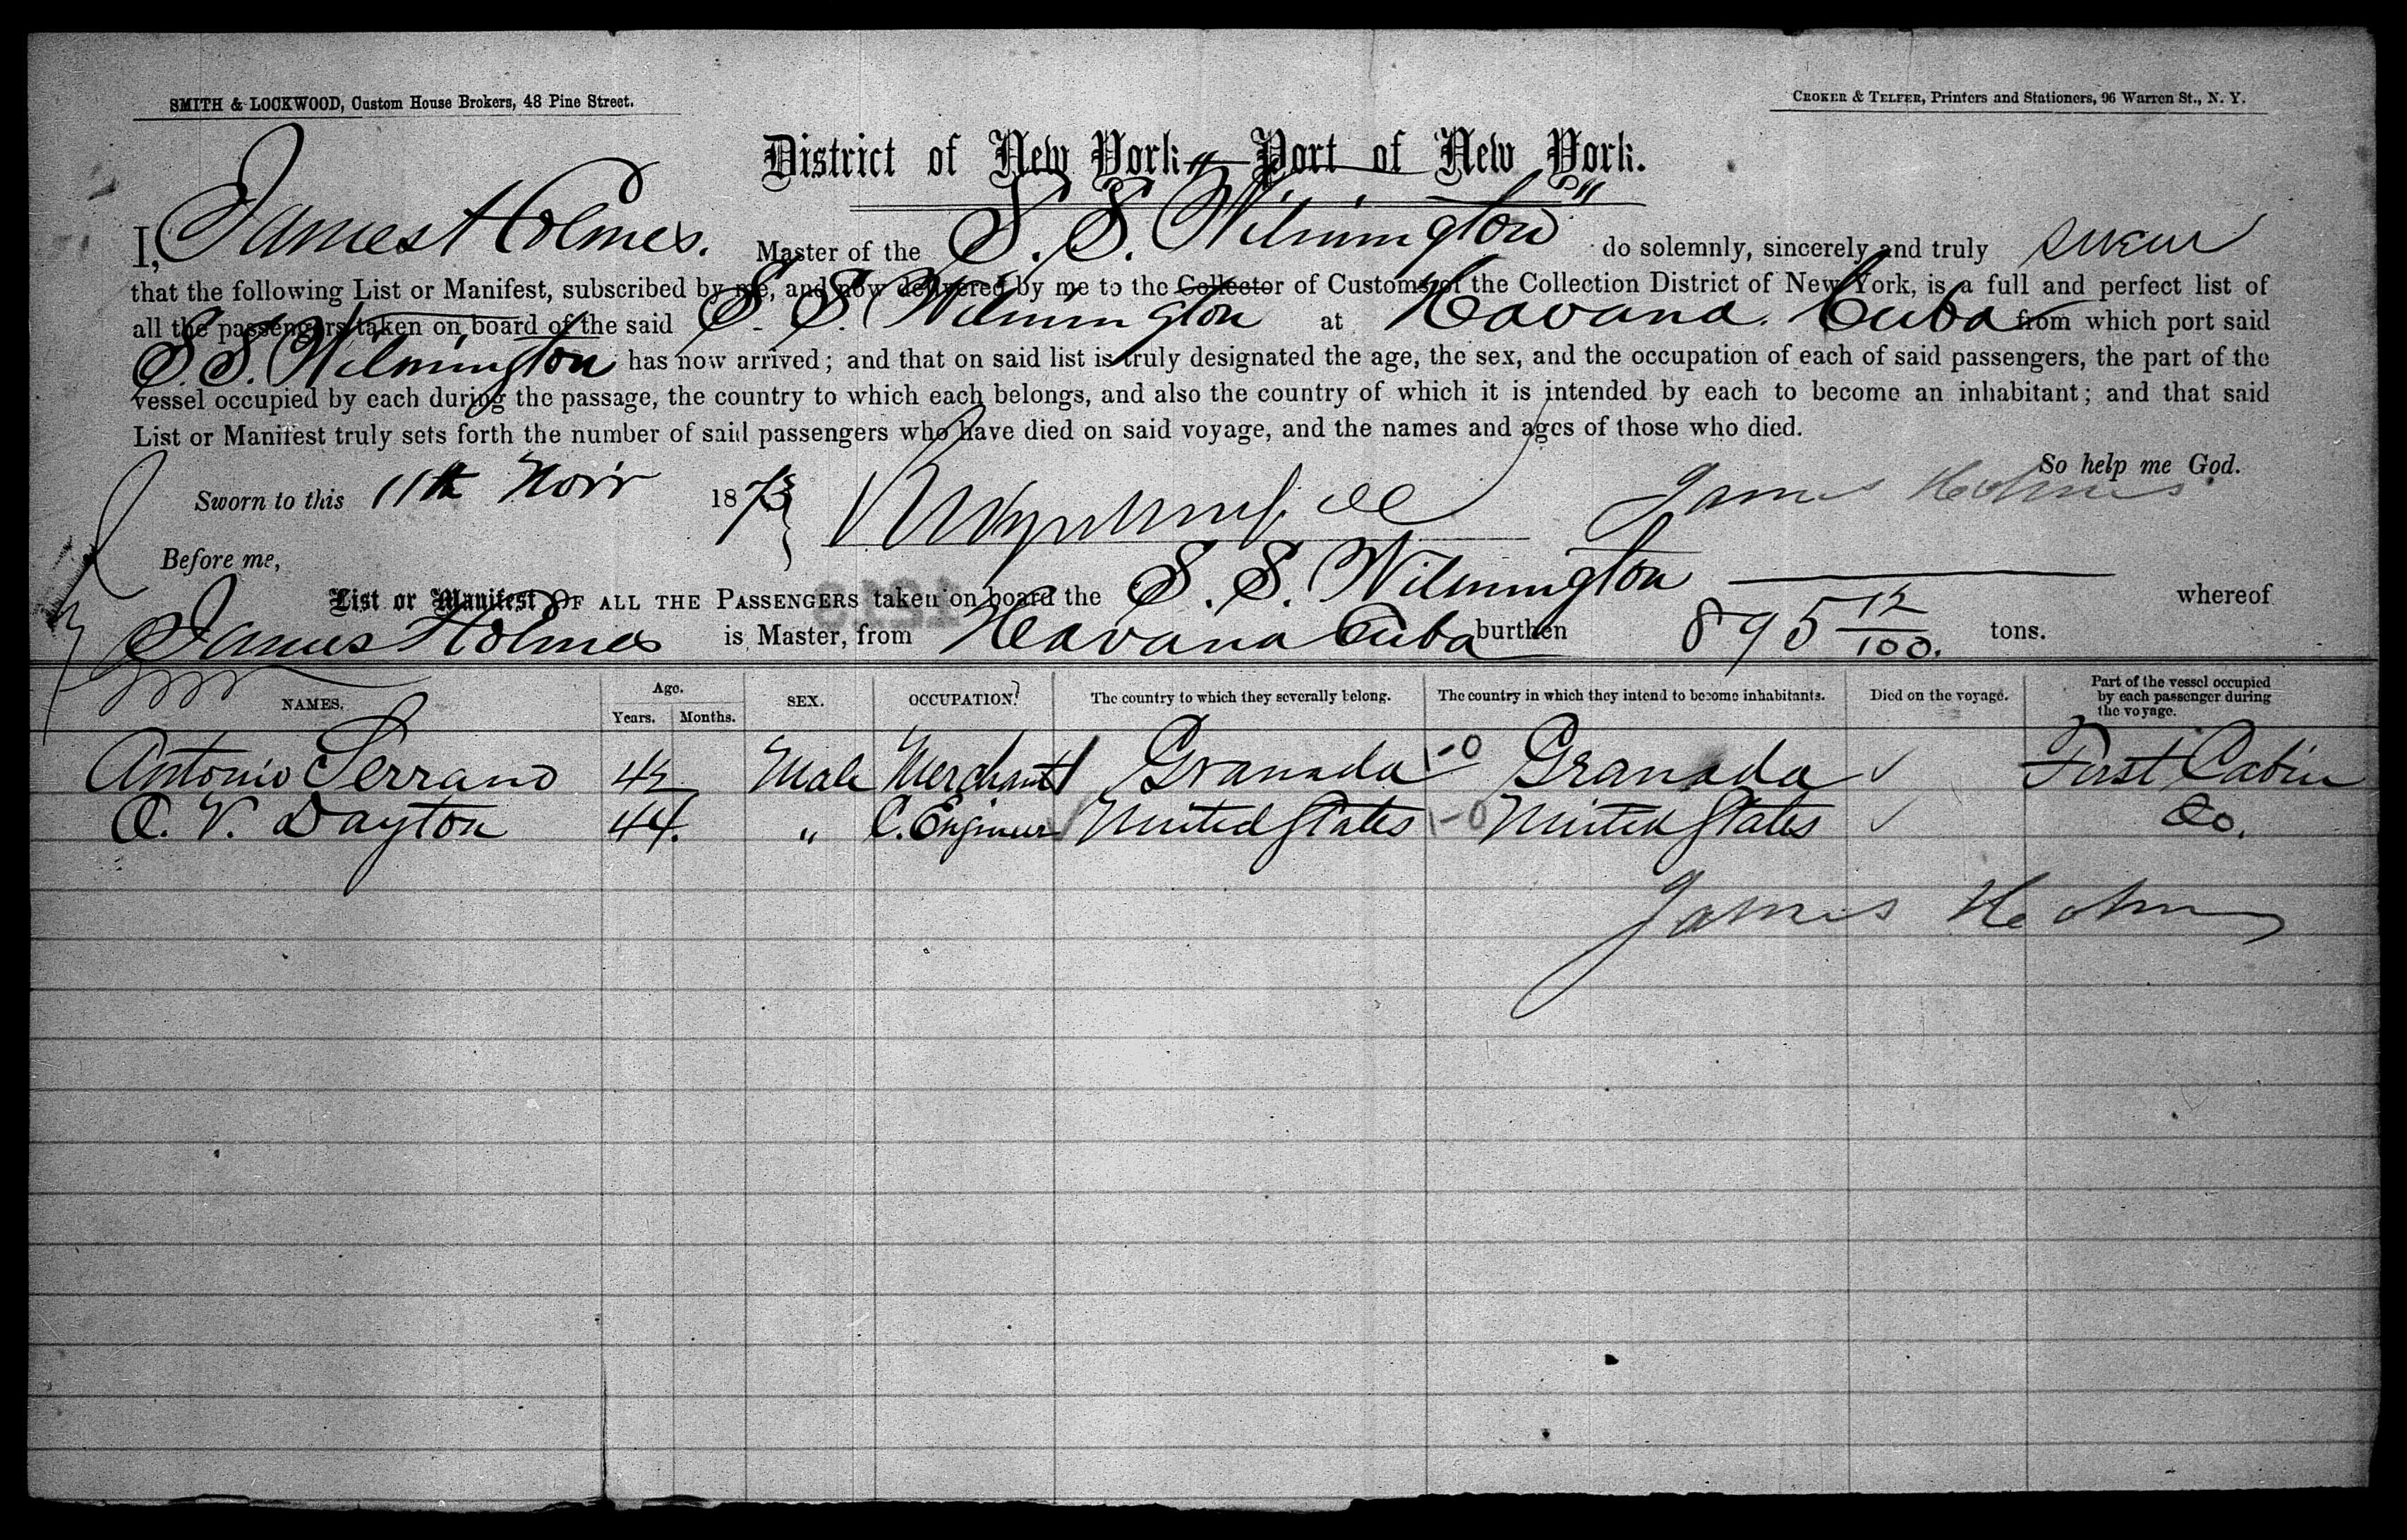 SMITH & LOCKWOOD, Custom House Brokers, 48 Pine Street.
CROKER & TELFER, Printers and Stationers, 96 Warren St., N. Y.
District of New York—Port of New York.
I, James Holmes. Master of the "S. S. Wilmington" do solemnly, sincerely and truly swear
that the following List or Manifest, subscribed by me, and now delivered by me to the Collector of Customs of the Collection District of New York, is a full and perfect list of
all the passengers taken on board of the said S. S. Wilmington at Havana. Cuba from which port said
S. S. Wilmington has now arrived; and that on said list is truly designated the age, the sex, and the occupation of each of said passengers, the part of the
vessel occupied by each during the passage, the country to which each belongs, and also the country of which it is intended by each to become an inhabitant; and that said
List or Manifest truly sets forth the number of said passengers who have died on said voyage, and the names and ages of those who died.
So help me God.
Sworn to this 11th Novr 1873 James Holmes
Before me,
List or Manifest OF ALL THE PASSENGERS taken on board the S. S. Wilmington whereof
James Holmes is Master, from Havana Cuba burthen 895 12/100. tons.
NAMES. Age. Years. Months. SEX. OCCUPATION. The country to which they severally belong. The country in which they intend to become inhabitants. Died on the voyage. Part of the vessel occupied by each passenger during the voyage.
Antonio Serrano 42 Male Merchant Granada 1-0 Granada ✓ First Cabin
C. V. Dayton 44. " C. Engineer United States 1-0 United States ✓ Do.
James Holmes